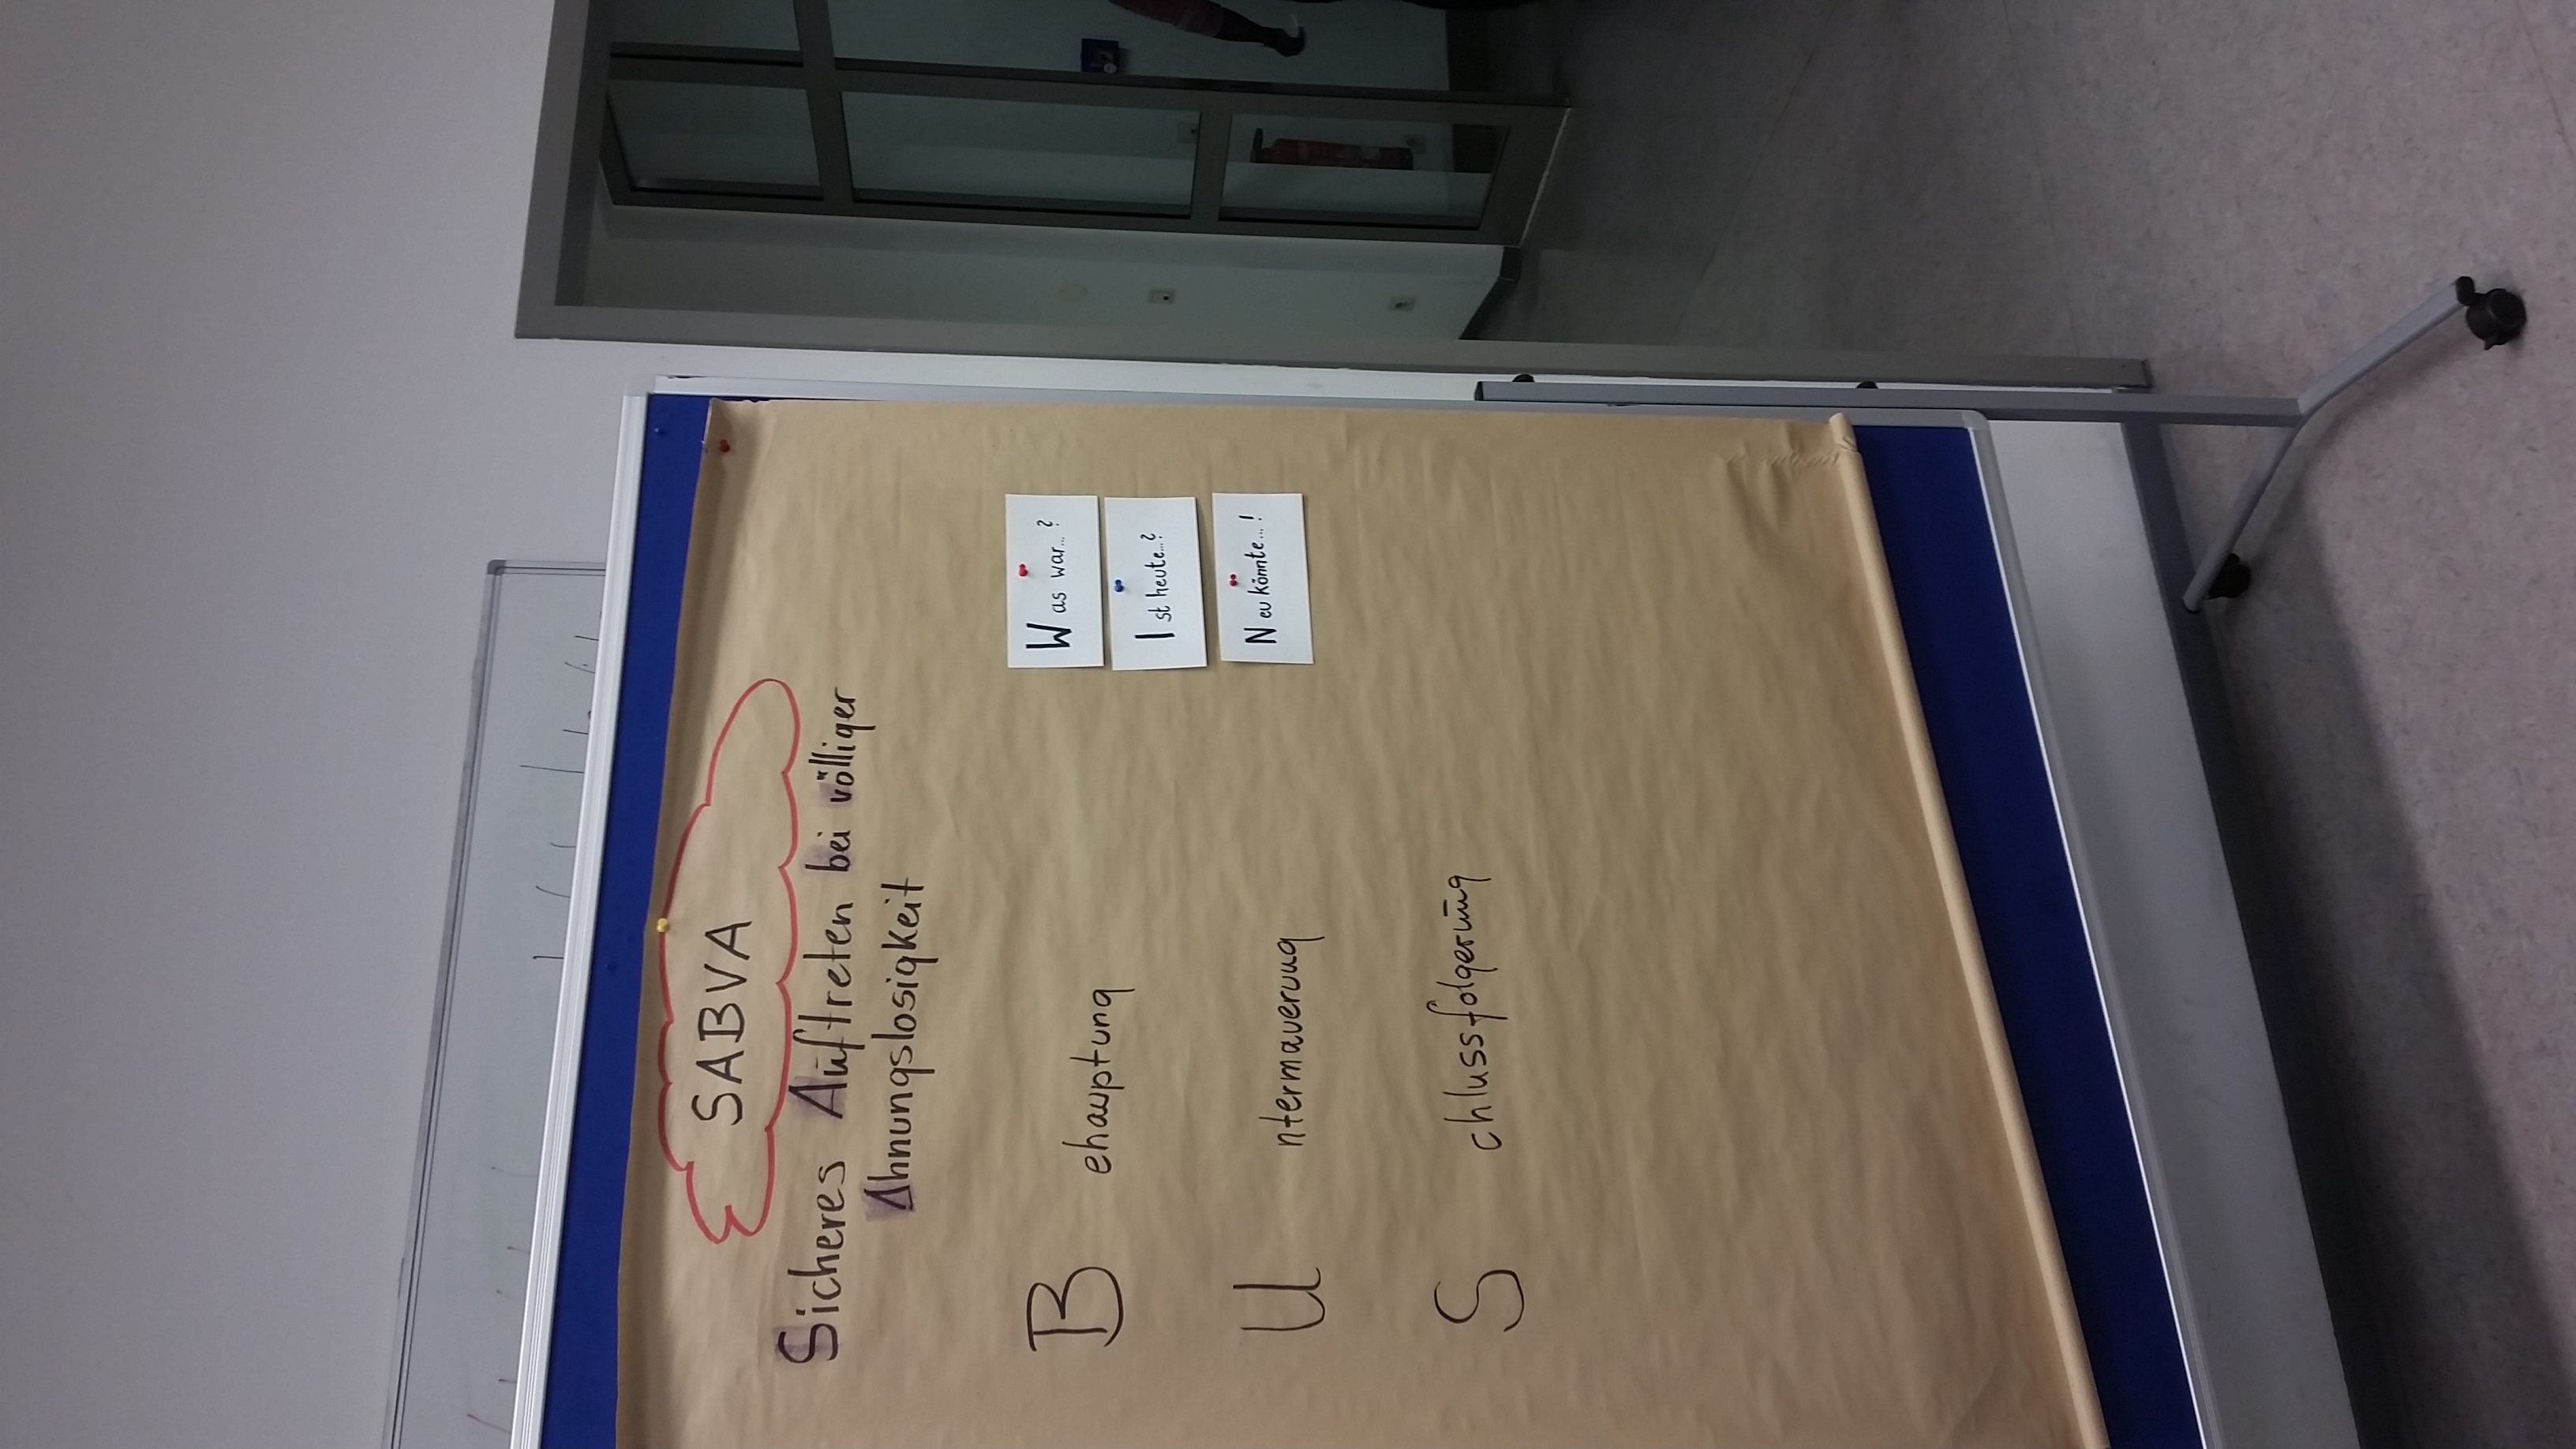 SABVA
Sicheres Auftreten bei völliger
Ahnungslosigkeit
B ehauptung
U ntermauerung
S chlussfolgerung
W as war...?
I st heute...?
N eu könnte...!